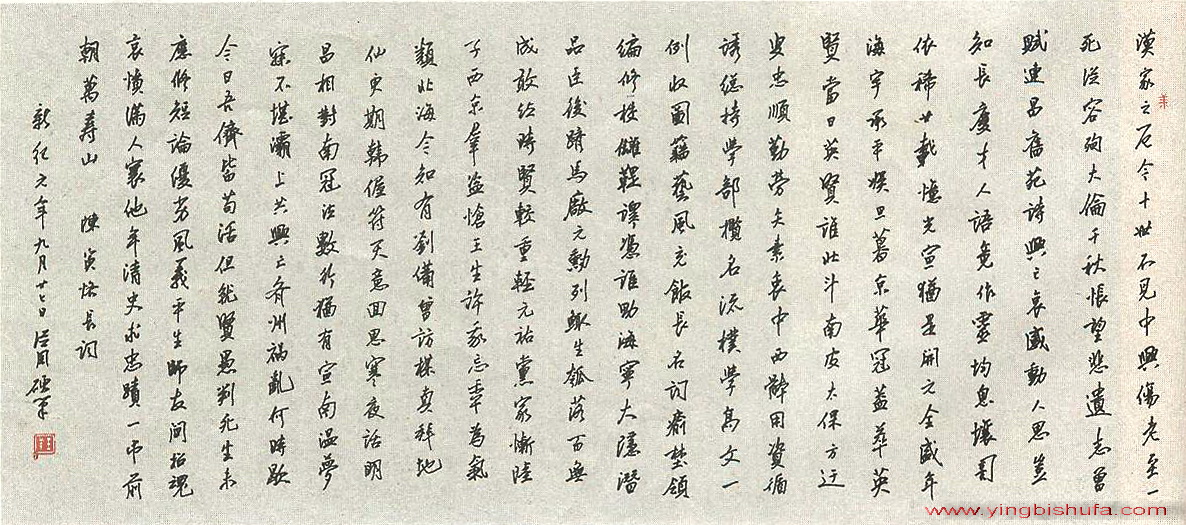 漢家之厄今十世不見中興傷老至一
死從容殉大倫千秋悵望悲遺志曾
賦連昌舊苑詩興亡哀感動人思豈
知長慶才人語竟作靈均息壤詞
依稀廿載憶光宣猶是開元全盛年
海宇承平娛旦暮京華冠蓋萃英
賢當日英賢誰北斗南皮太保方迂
叟忠順勤勞矢素衷中西體用資循
誘總持學部攬名流樸學高文一
例收圖藉藝風充館長名詞瘉壄領
編修校讎鞮譯憑誰助海寧大隱潛
品臣後躋馬廠元勳列鯫生瓠落百無
成敢並時賢較重輕元祐黨家慚陸
子西京羣盜愴王生許我忘年為氣
類北海今知有劉備曾訪楳真拜地
仙更期韓偓符天意回思寒夜話明
昌相對南冠泣數行猶有宣南溫夢
寐不堪灞上共興亡齊州禍亂何時歇
今日吾儕皆苟活但就賢愚判死生未
應修短論優劣風義平生師友間招魂
哀憤滿人寰他年清史求忠蹟一弔前
朝萬壽山 陳寅恪長詞
新紀元年九月廿七日 硬筆
www.yingbishufa.com